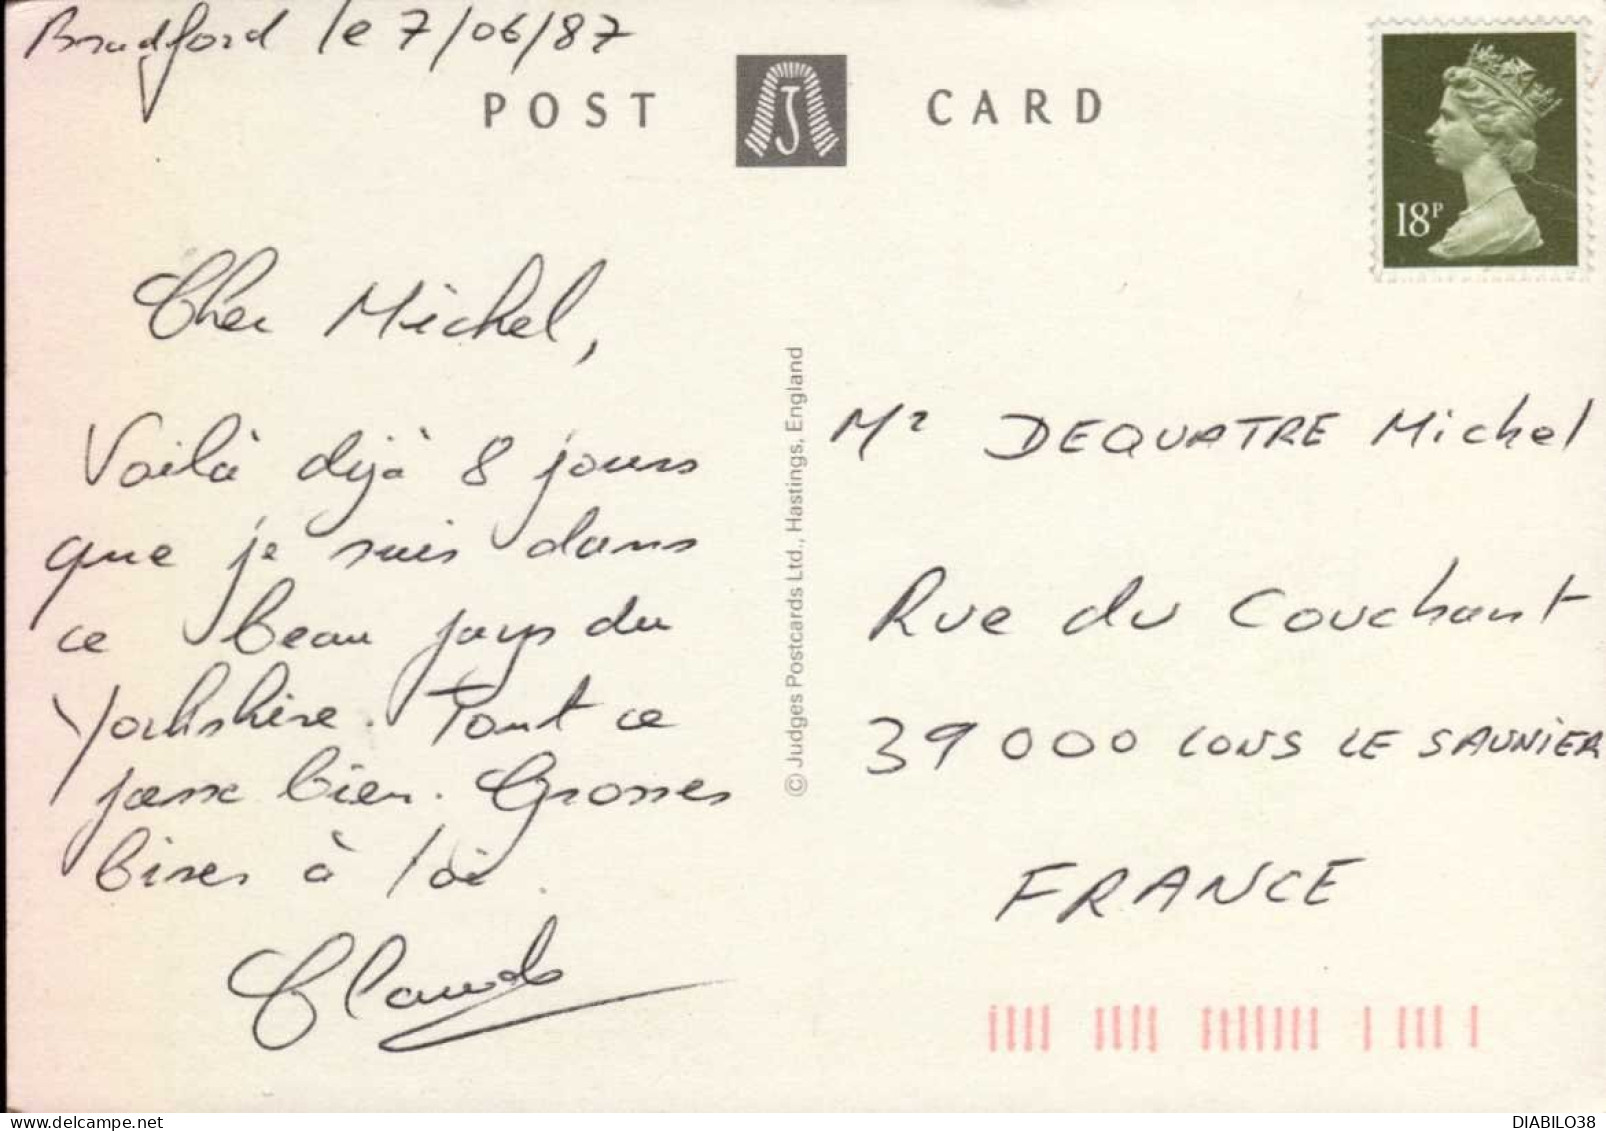 Bradford le 7/06/87
POST J CARD
18P
Cher Michel,
Voilà déjà 8 jours
que je suis dans
ce beau pays du
Yorkshire. Tout ce
passe bien. Grosses
bises à toi.
Claude
© Judges Postcards Ltd., Hastings, England
Mr DEQUATRE Michel
Rue du Couchant
39000 LONS LE SAUNIER
FRANCE
DIABILO38